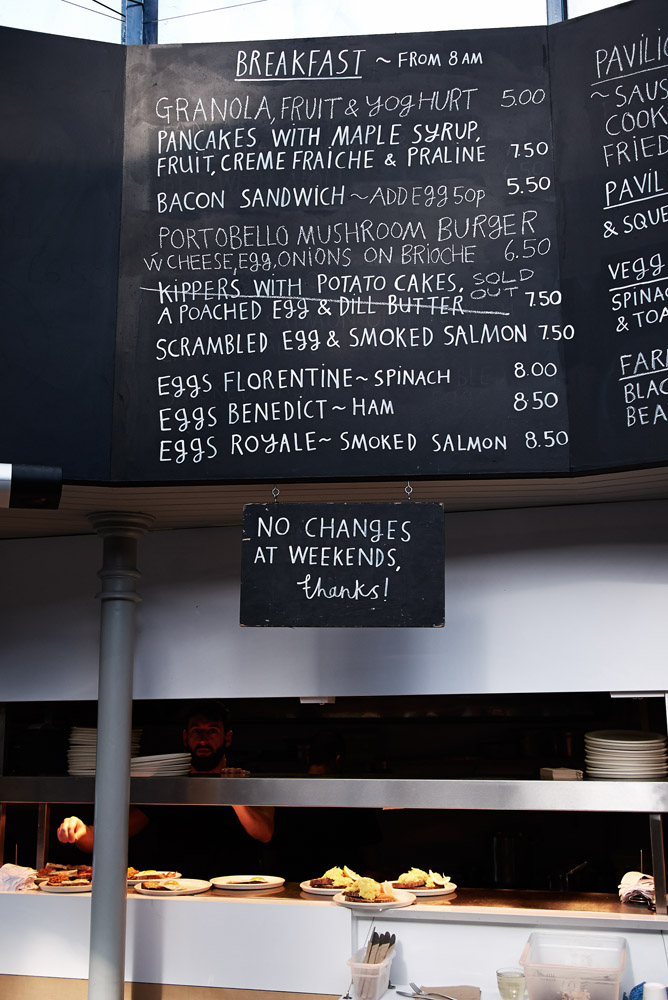 BREAKFAST ~ FROM 8AM
GRANOLA, FRUIT & YOGHURT 5.00
PANCAKES WITH MAPLE SYRUP,
FRUIT, CREME FRAÎCHE & PRALINE 7.50
BACON SANDWICH ~ ADD EGG 50p 5.50
PORTOBELLO MUSHROOM BURGER
W CHEESE, EGG, ONIONS ON BRIOCHE 6.50
KIPPERS WITH POTATO CAKES, SOLD OUT
A POACHED EGG & DILL BUTTER 7.50
SCRAMBLED EGG & SMOKED SALMON 7.50
EGGS FLORENTINE ~ SPINACH 8.00
EGGS BENEDICT ~ HAM 8.50
EGGS ROYALE ~ SMOKED SALMON 8.50
~ SAUS
COOK
FRIED
PAVIL
& SQUE
VEGG
SPINA
& TOA
FAR
BLAC
BEA
NO CHANGES
AT WEEKENDS,
thanks!